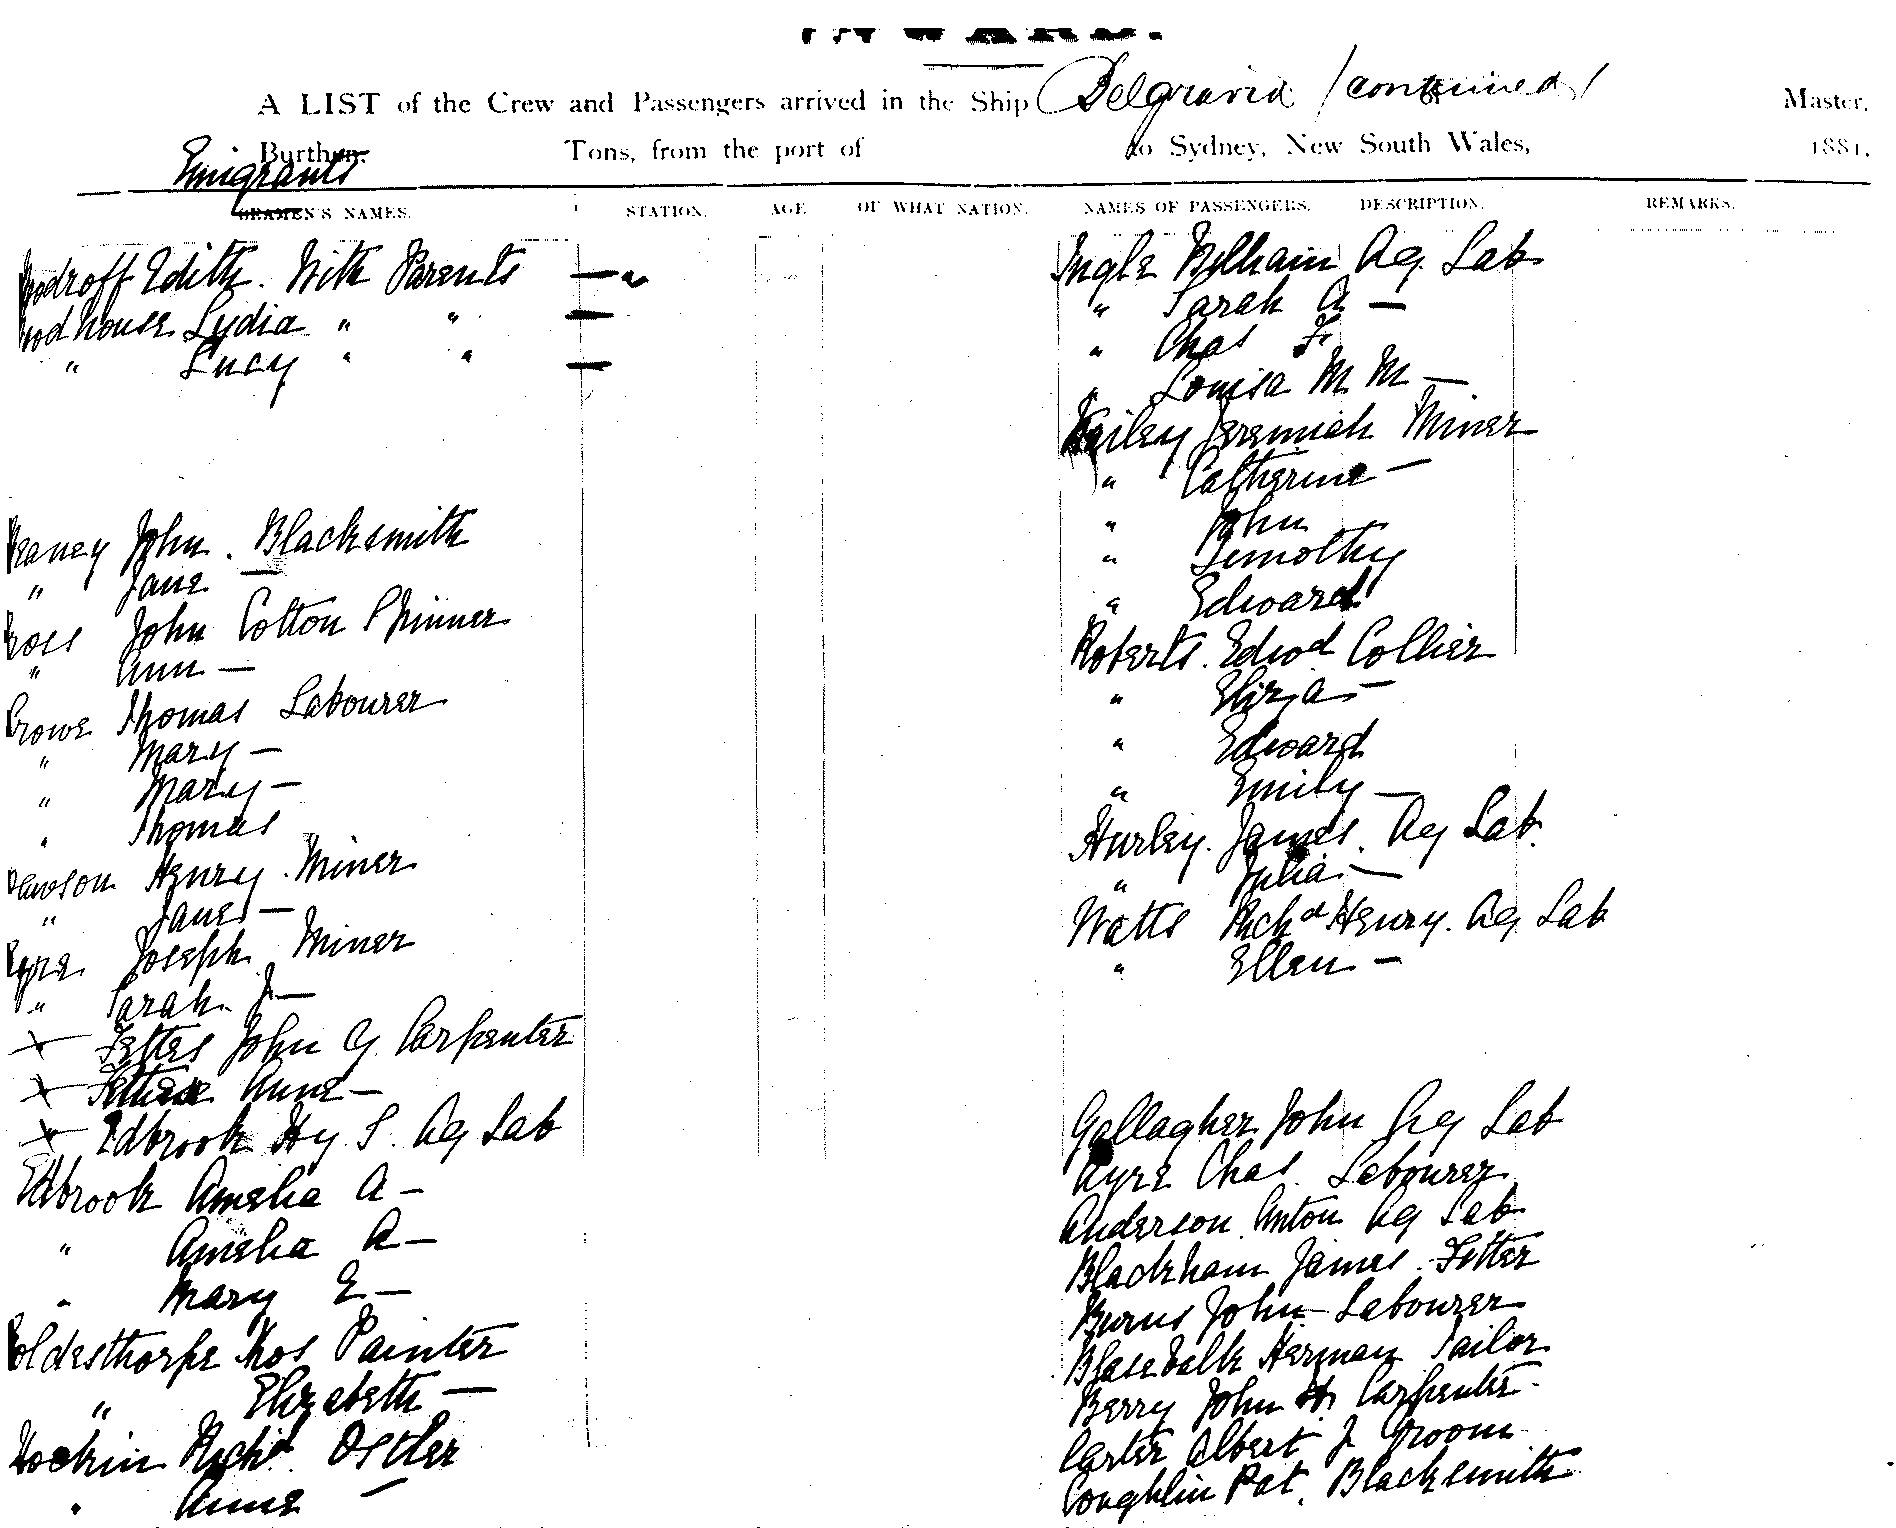 INWARD.
A LIST of the Crew and Passengers arrived in the Ship Belgravia /continued/ Master,
Burthen, Tons, from the port of to Sydney, New South Wales, 1881.
Emigrants
SEAMEN'S NAMES. STATION. AGE OF WHAT NATION. NAMES OF PASSENGERS. DESCRIPTION. REMARKS.
Woodroff Edith. With Parents —"
Woodhouse Lydia " " —
" Lucy " " —
John. Blacksmith
" Jane —
John Cotton Spinner
" Ann —
Crowe Thomas Labourer
" Mary —
" Mary —
" Thomas
Henry. Miner
" Jane —
Joseph Miner
" Sarah J —
x John G Carpenter
x Anne —
x Edbrook Hy S. Ag Lab
Edbrook Amelia A —
" Amelia A —
" Mary E —
Goldesthorpe Thos Painter
" Elizabeth —
Richd. Ostler
" Anne —
Ingle William Ag. Lab
" Sarah A —
" Chas F
" Louisa M M —
Jeremiah Miner
" Catherine —
" John
" Timothy
" Edward
Roberts. Edwd Collier
" Eliza —
" Edward
" Emily —
Hurley. James. Ag Lab.
" Julia —
Watts Richd Henry. Ag Lab
" Ellen —
Gallagher John Ag Lab
Ayre Chas. Labourer
Anderson Anton Ag Lab
Blackham James. Fitter
Burns John Labourer
Herman Tailor
Berry John H Carpenter
Carter Albert J Groom
Coughlin Pat. Blacksmith